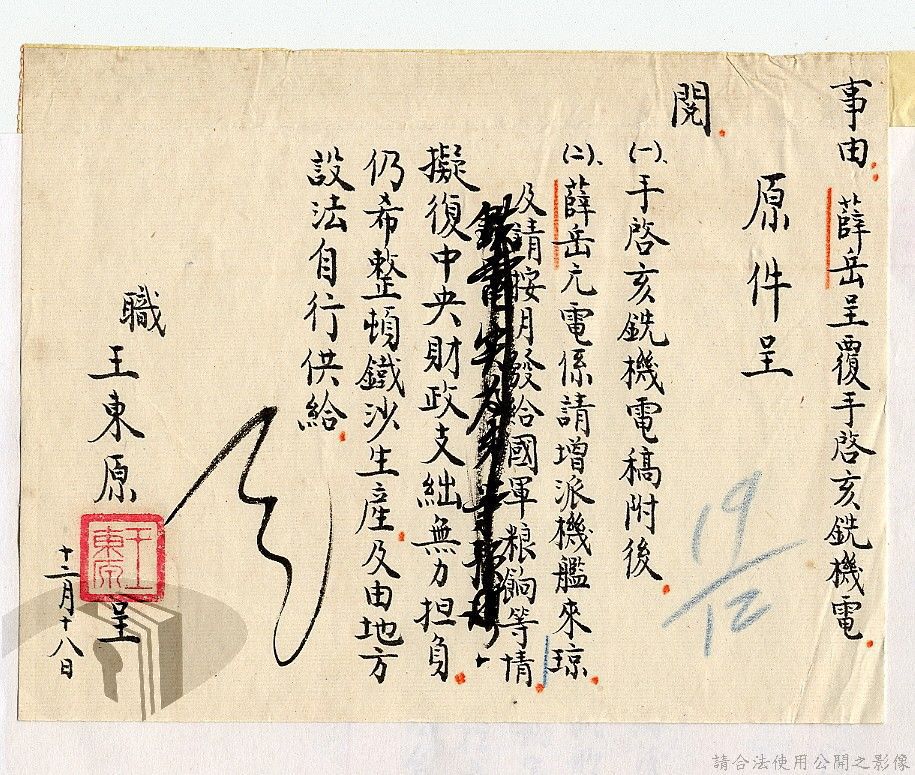 事由：薛岳呈覆手啓亥銑機電
原件呈
閱
㈠、手啓亥銑機電稿附後
㈡、薛岳元電係請增派機艦來瓊
及請按月發給國軍粮餉等情
擬復中央財政支絀無力担負
仍希整頓鐵沙生產及由地方
設法自行供給
職王東原呈
王東原
十二月十八日
19/12
請合法使用公開之影像